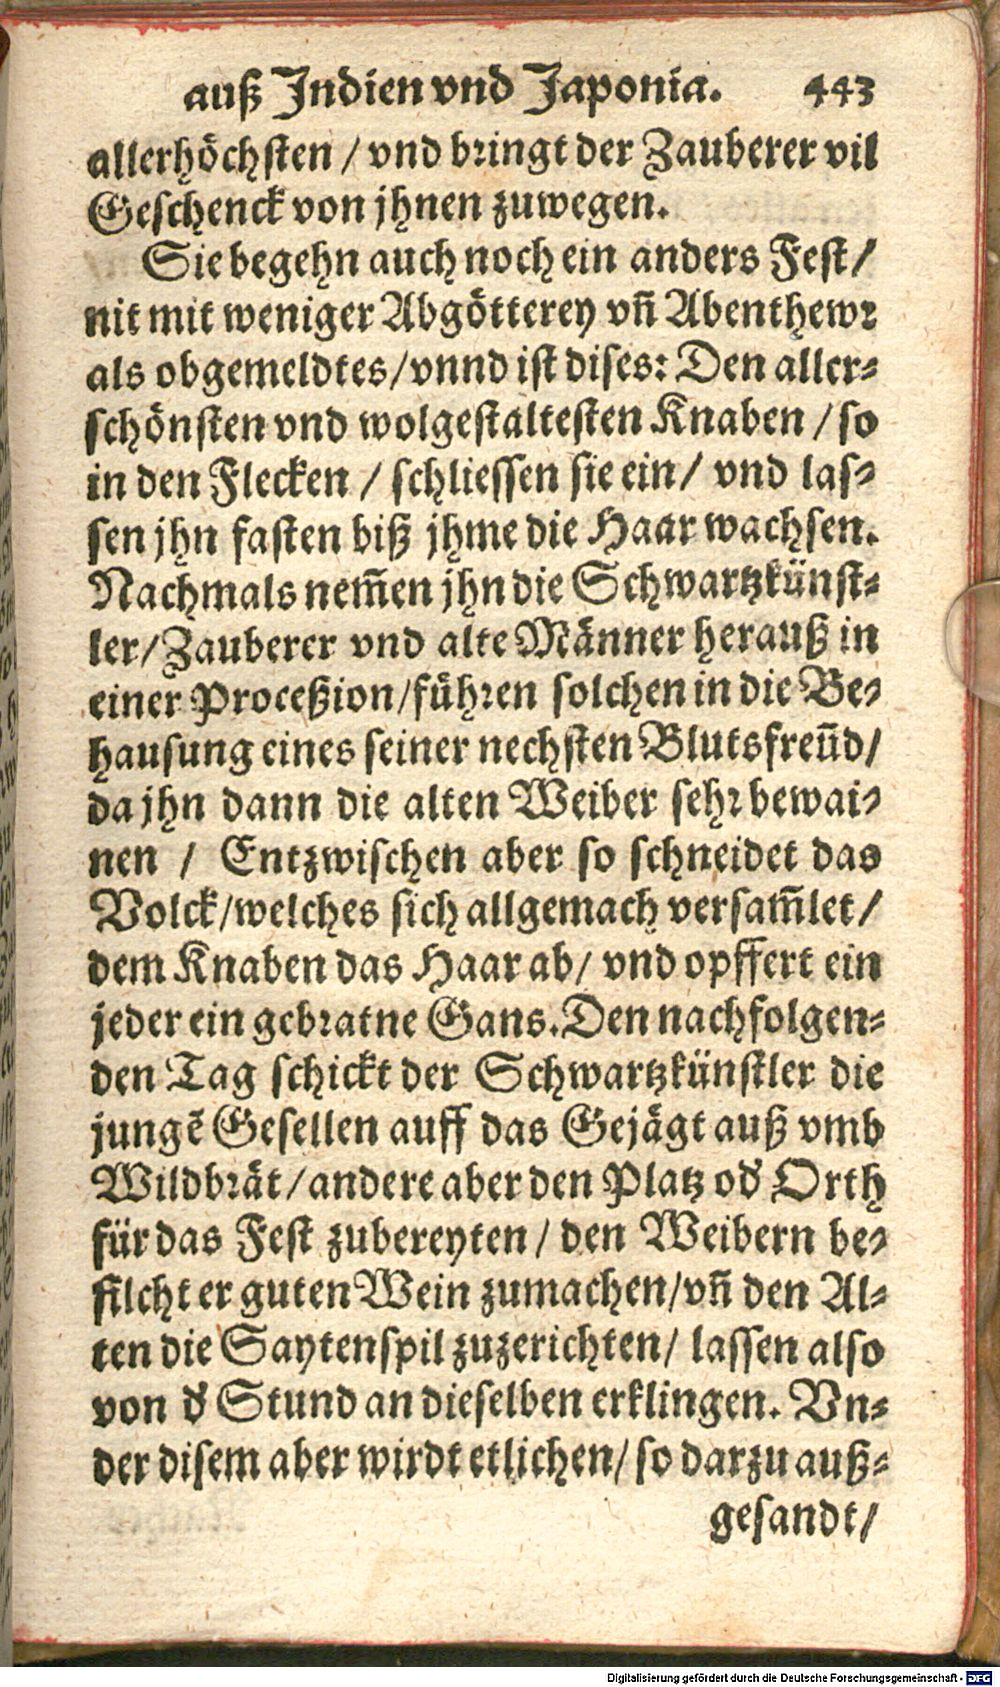 auß Jndien vnd Japonia. 443
allerhöchsten / vnd bringt der Zauberer vil
Geschenck von jhnen zuwegen.
Sie begehn auch noch ein anders Fest /
nit mit weniger Abgötterey vn̄ Abenthewr
als obgemeldtes / vnnd ist dises: Den aller-
schönsten vnd wolgestaltesten Knaben / so
in den Flecken / schliessen sie ein / vnd las-
sen jhn fasten biß jhme die Haar wachsen.
Nachmals nem̄en jhn die Schwartzkünst-
ler / Zauberer vnd alte Männer herauß in
einer Proceßion / führen solchen in die Be-
hausung eines seiner nechsten Blutsfreūd /
da jhn dann die alten Weiber sehr bewai-
nen / Entzwischen aber so schneidet das
Volck / welches sich allgemach versam̄let /
dem Knaben das Haar ab / vnd opffert ein
jeder ein gebratne Gans. Den nachfolgen-
den Tag schickt der Schwartzkünstler die
jungē Gesellen auff das Gejägt auß vmb
Wildbrät / andere aber den Platz od' Orth
für das Fest zubereyten / den Weibern be-
filcht er guten Wein zumachen / vn̄ den Al-
ten die Saytenspil zuzerichten / lassen also
von d' Stund an dieselben erklingen. Vn-
der disem aber wirdt etlichen / so darzu auß-
gesandt /
Digitalisierung gefördert durch die Deutsche Forschungsgemeinschaft - DFG